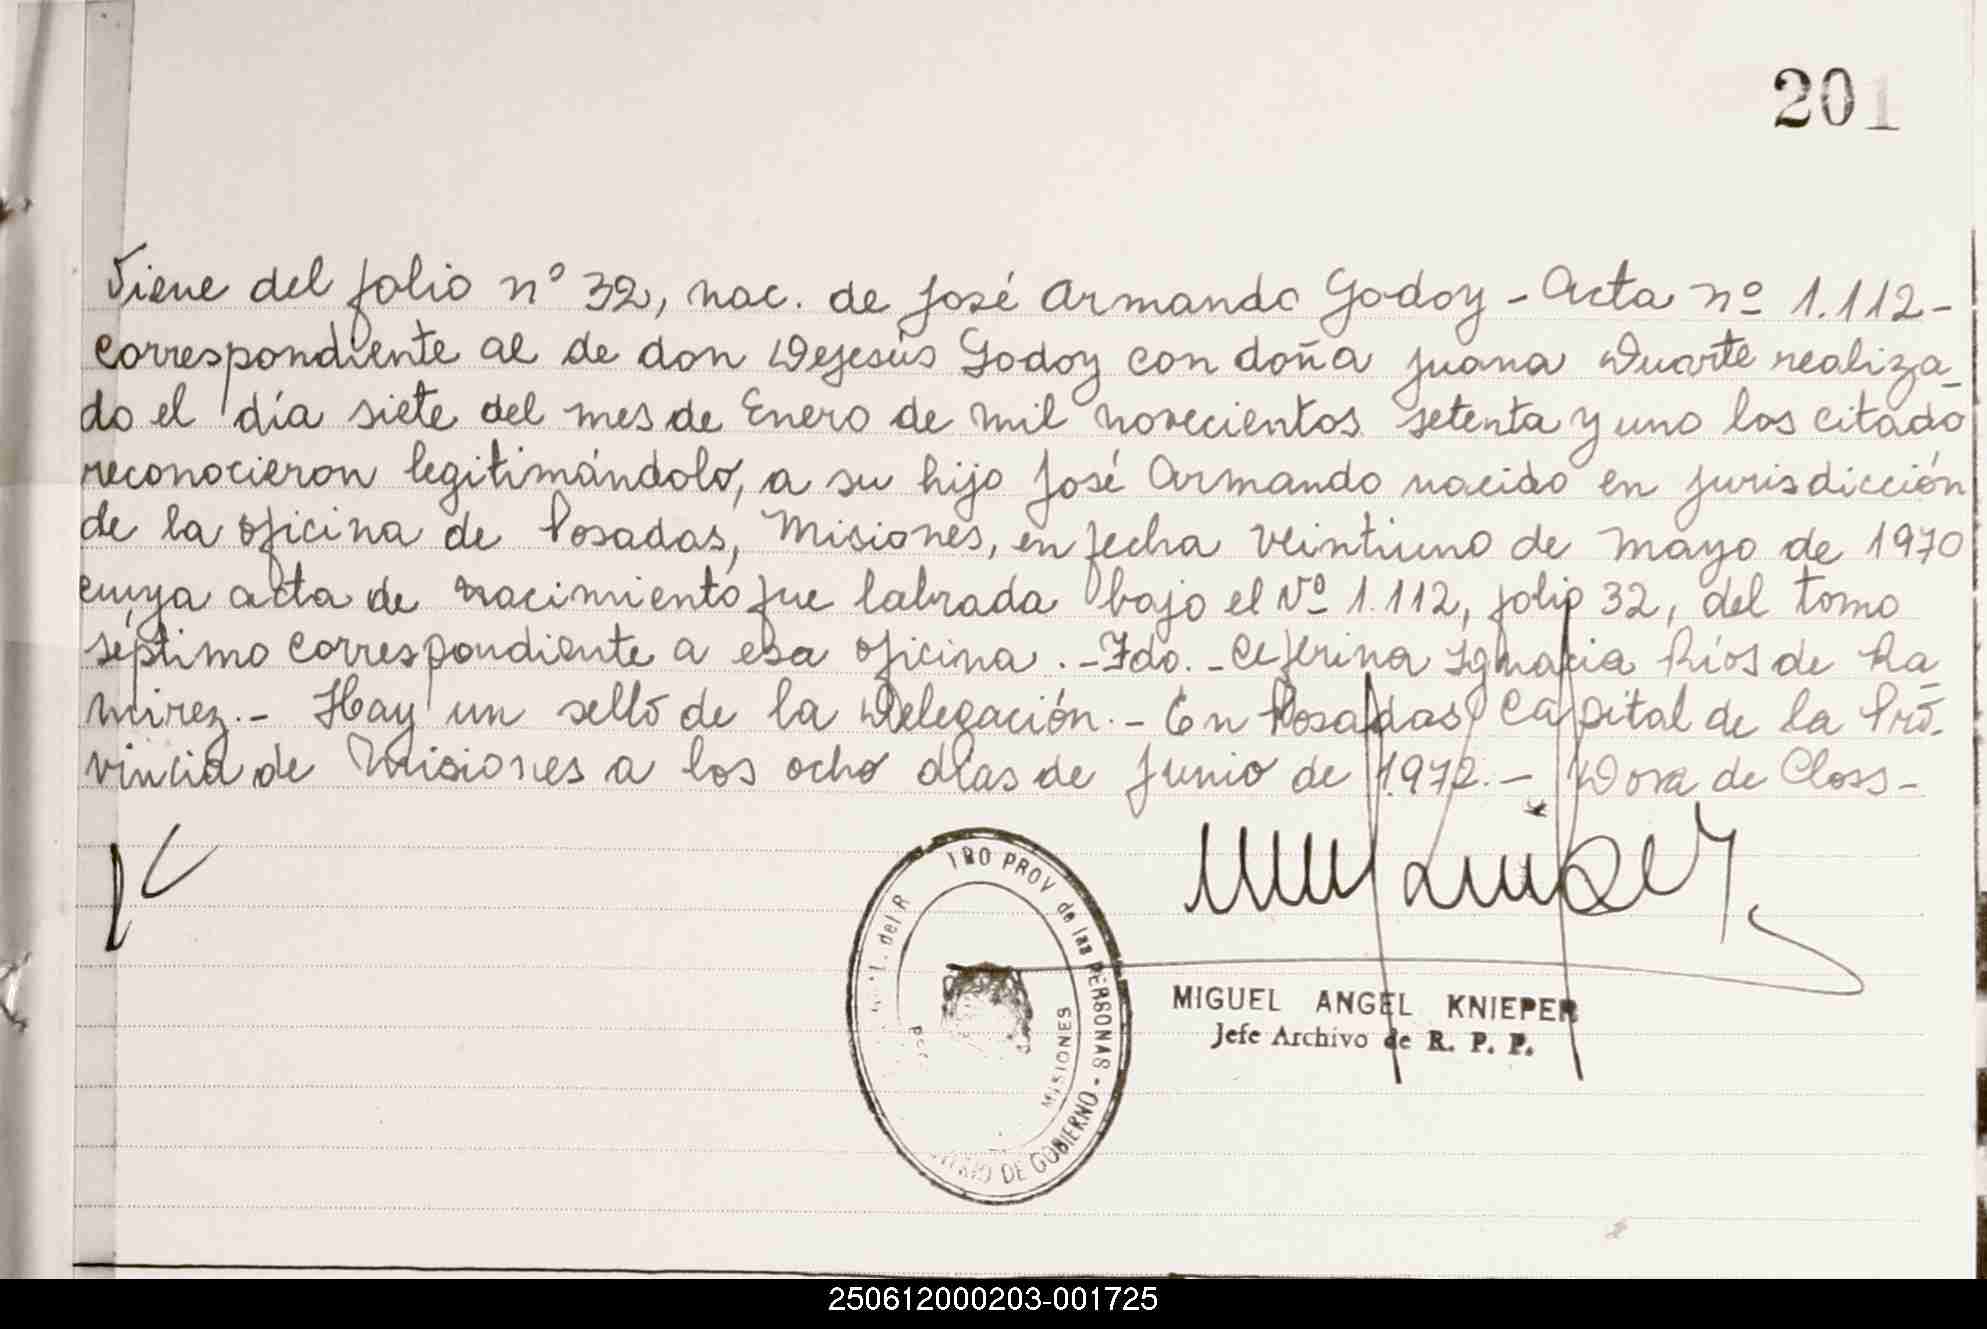 201
Viene del folio nº 32, nac. de José Armando Godoy - Acta nº 1.112-
correspondiente al de don Dejesús Godoy con doña Juana Duarte realiza-
do el día siete del mes de Enero de mil novecientos setenta y uno los citado
reconocieron legitimándolo, a su hijo José Armando nacido en jurisdicción
de la oficina de Posadas, Misiones, en fecha veintiuno de mayo de 1970
cuya acta de nacimiento fue labrada bajo el Nº 1.112, folio 32, del tomo
séptimo correspondiente a esa oficina .- Fdo. - Ceferina Ignacia Ríos de Ra-
mirez.- Hay un sello de la Delegación.- En Posadas, Capital de la Pro-
vincia de Misiones a los ocho días de Junio de 1.972.- Dora de Closs-
del R TRO PROV de las PERSONAS - DE GOBIERNO
MISIONES
MIGUEL ANGEL KNIEPER
Jefe Archivo de R. P. P.
250612000203-001725